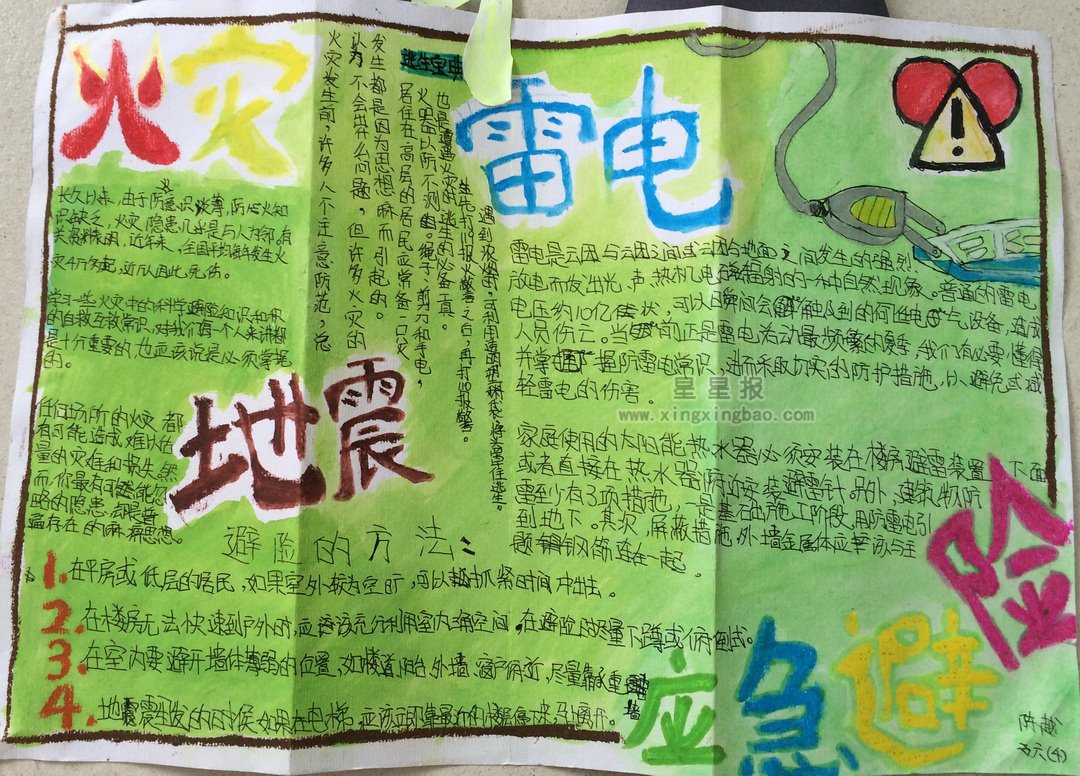 火灾
长久以来,由于防火意识淡薄,防心火知
识缺乏,火灾隐患几乎是与人为邻。有
关资料表明,近年来,全国平均每年发生火
灾4万为起,近
学习一些火灾中的科学避险知识和积
的自救互救常识,对我们每一个人来讲都
是十分重要的,也应该说是必须掌握
的。
任何场所的火灾都
有可能造成难以估
量的灾难和损失,然
而,你最有可能
略的隐患
遍存在的麻痹思想。
火灾发生前,许多人不注意防范,总
认为不会出什么问题,但许多火灾的
发生都是因为思想麻痹而引起的。
逃生宝典
居住在高层的居民应常备一只灭
火器以防不测。绳子、剪刀和手电,
也是遭遇火灾的逃生的必备工具。
雷电
雷电是云团与云团之间或云团与地面之间发生的强烈
放电而发出光、声、热
自然现象。普通的雷电,
电压约10亿伏
可以瞬间会
触及到的何
电气设备,造成
人员伤亡。当
前正是雷电活动最频繁的夏季,我们有必要懂得
并掌
握防雷电常识,进而采取切实的防护措施,以避免或减
轻雷电的伤害。
星星报
www.xingxingbao.com
家庭使用的太阳能热水器必须安装在楼房避雷装置下面
或者直接在热水器附近安装避雷针。另外,建筑物防
雷至少有3项措施,一是基础施工阶段,用防雷电引
到地下。其次,屏蔽措施,外墙金属体应
钢筋连在一起。
地震
避险的方法:
1.在平房或低层的居民,如果室外较为空旷,可以
抓紧时间冲出。
2.在楼房无法快速到户外时,应该充分利用室内
空间,在避险时尽量下蹲或
3.在室内要避开墙体薄弱的位置,如楼道、阳台、外墙、窗户附近,尽量靠承重墙
4.地震发生的时候,如果在电梯,应该
应急避险